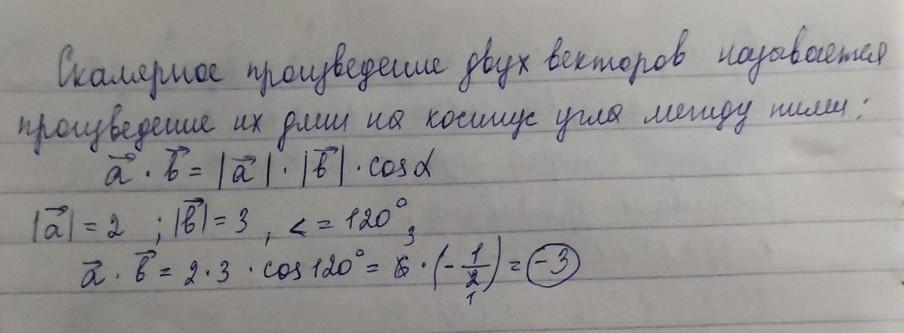 Скалярное произведение двух векторов называется
произведение их длин на косинус угла между ними:
a⃗ · b⃗ = |a⃗| · |b⃗| · cosα
|a⃗| = 2 ; |b⃗| = 3 , ∠ = 120°,
a⃗ · b⃗ = 2 · 3 · cos120° = 6̸³ · (-1/2̸₁) = -3